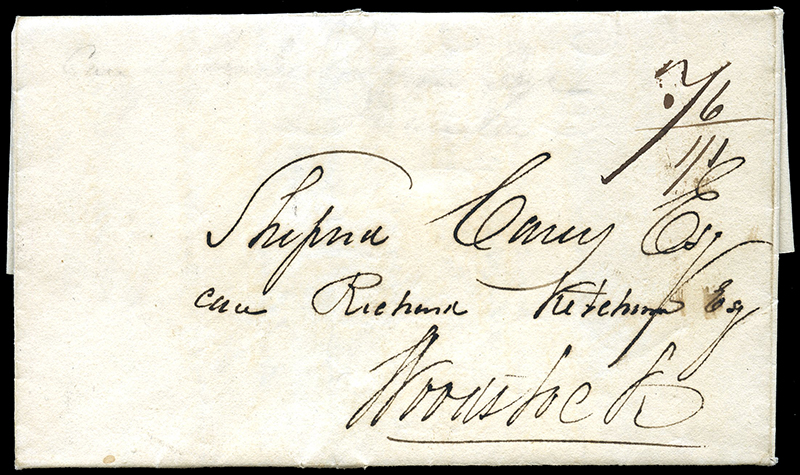 /6
1/1
Shepna Carey Esq
care Richard Ketchum Esq
Woodstock